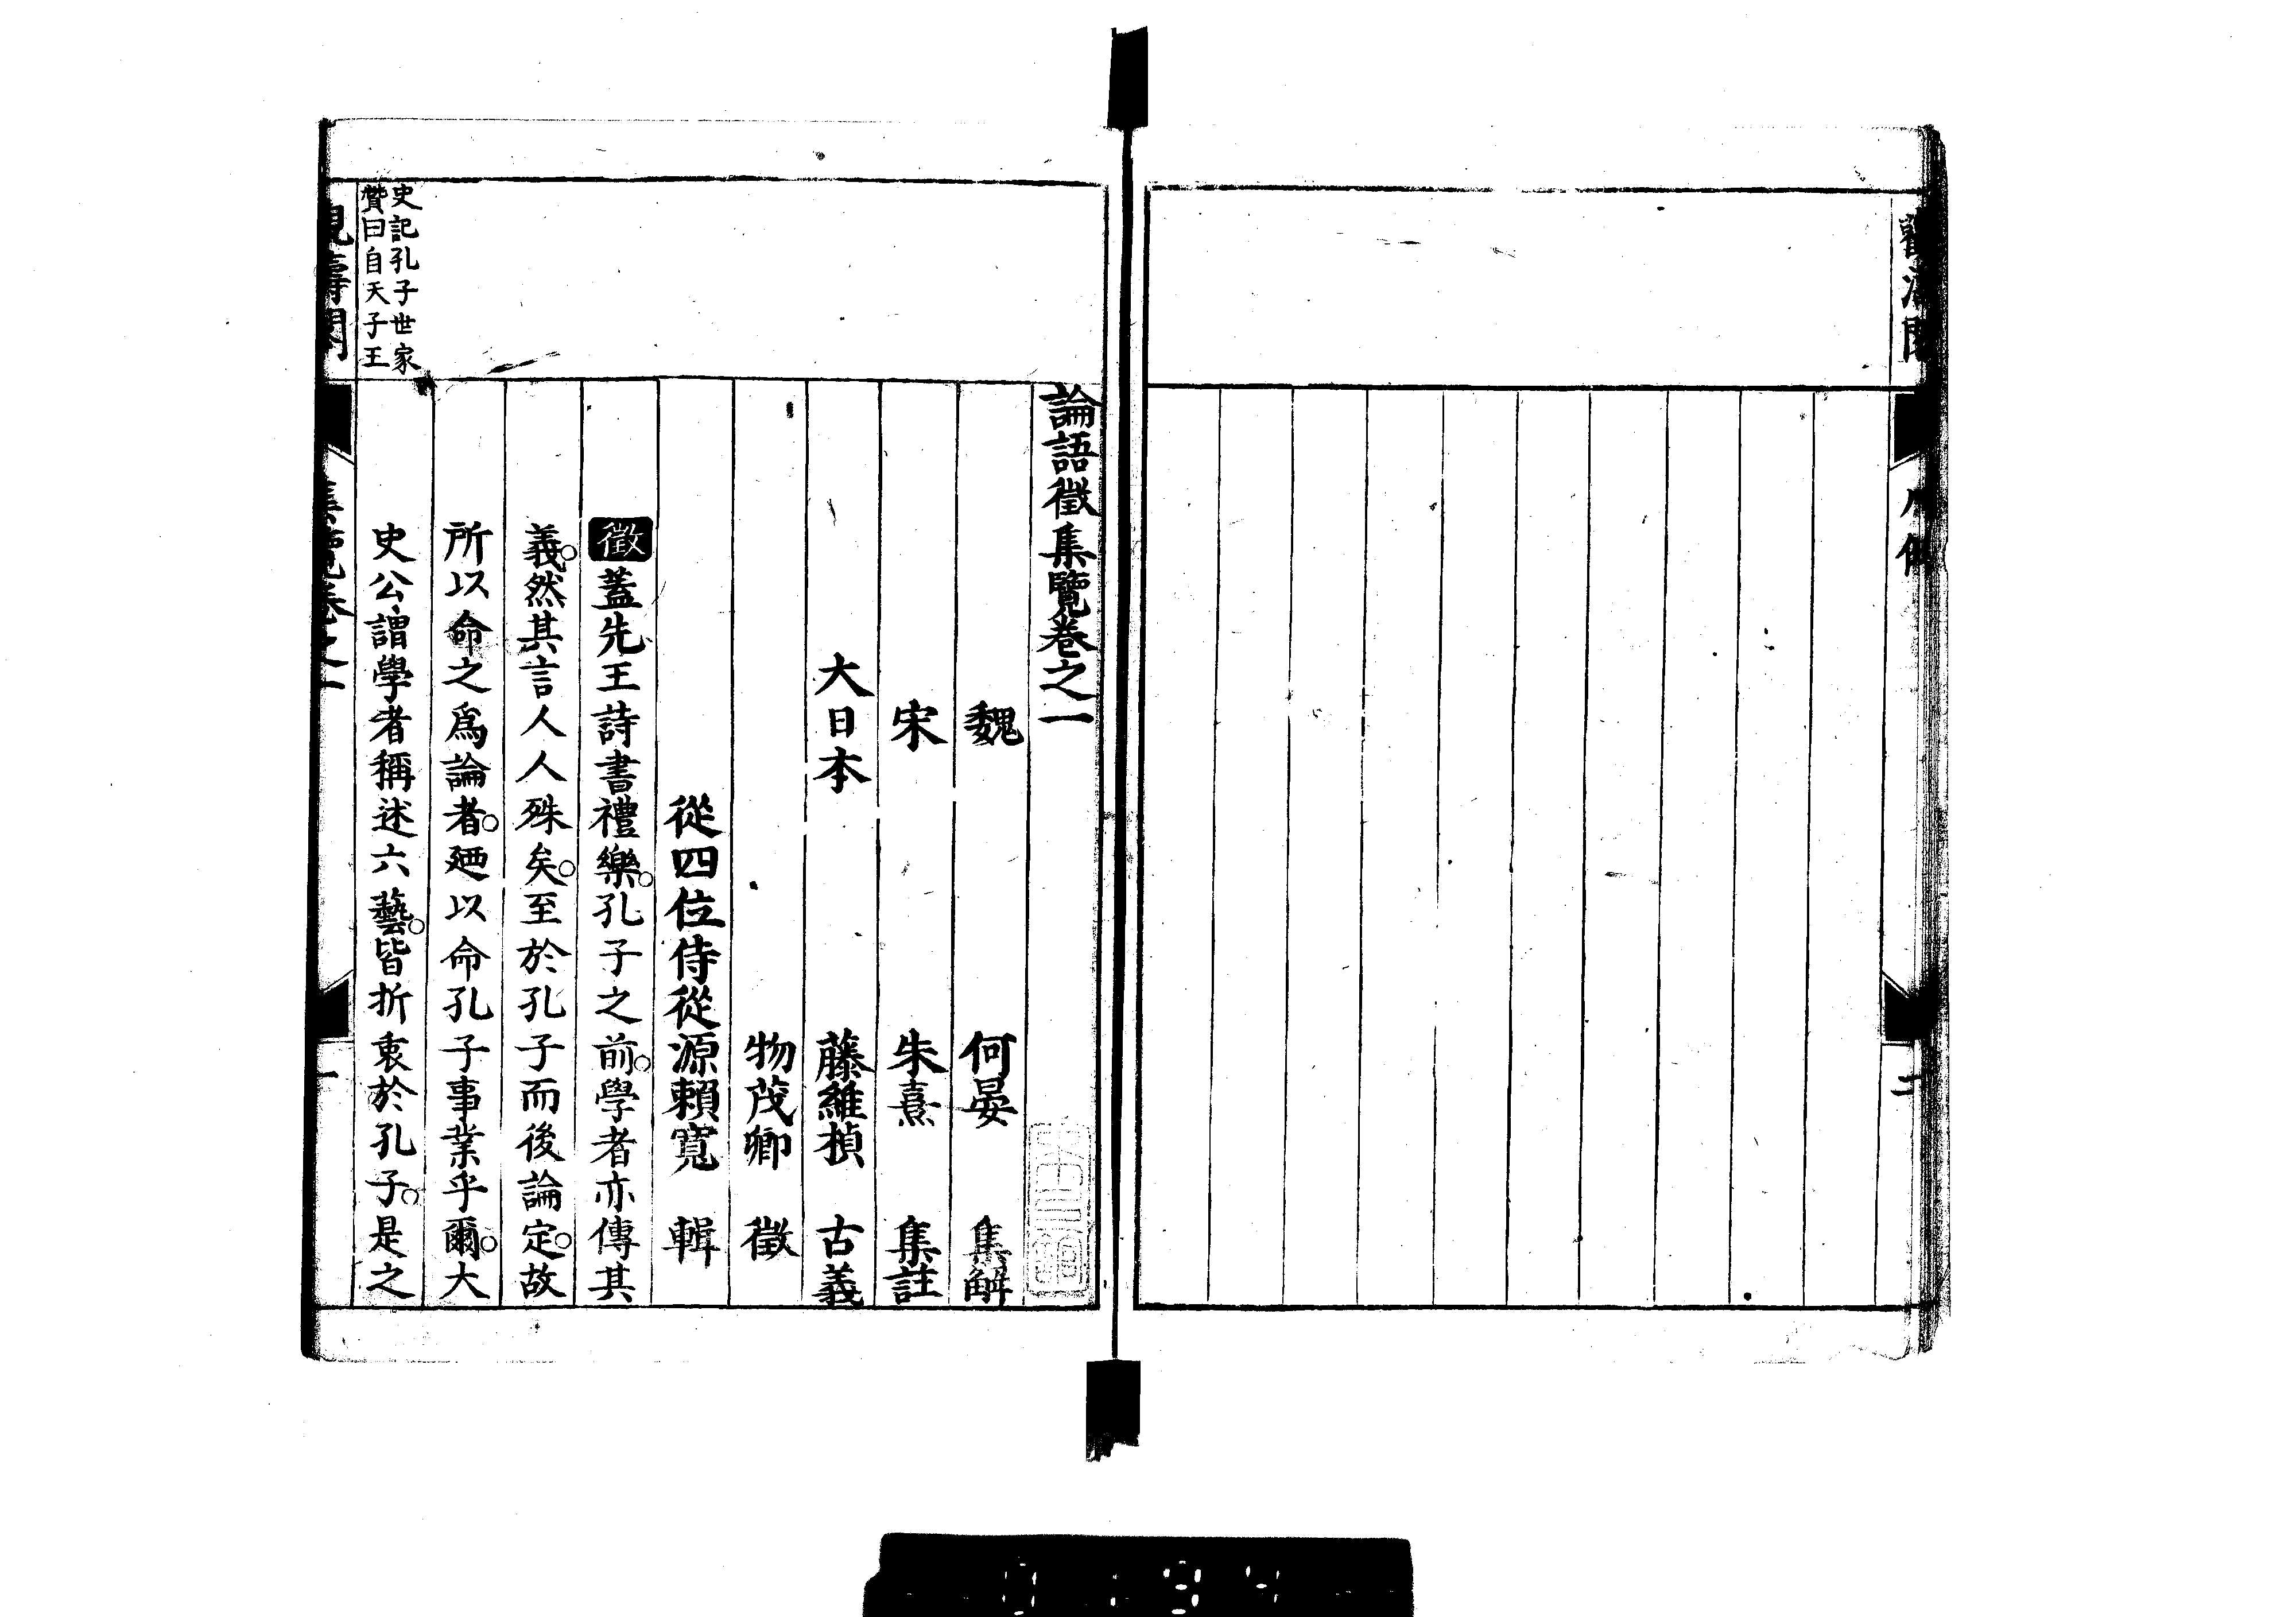 論語徵集覽卷之一
魏 何晏 集解
宋 朱熹 集註
大日本 藤維楨 古義
物茂卿 徵
從四位侍從源賴寬 輯
徵蓋先王詩書禮樂。孔子之前。學者亦傳其
義。然其言人人殊矣。至於孔子而後論定。故
所以命之爲論者。廼以命孔子事業乎爾。大
史公謂學者稱述六藝。皆折衷於孔子。是之
史記孔子世家
贊曰自天子王
集覽卷之一
一
凡例
二